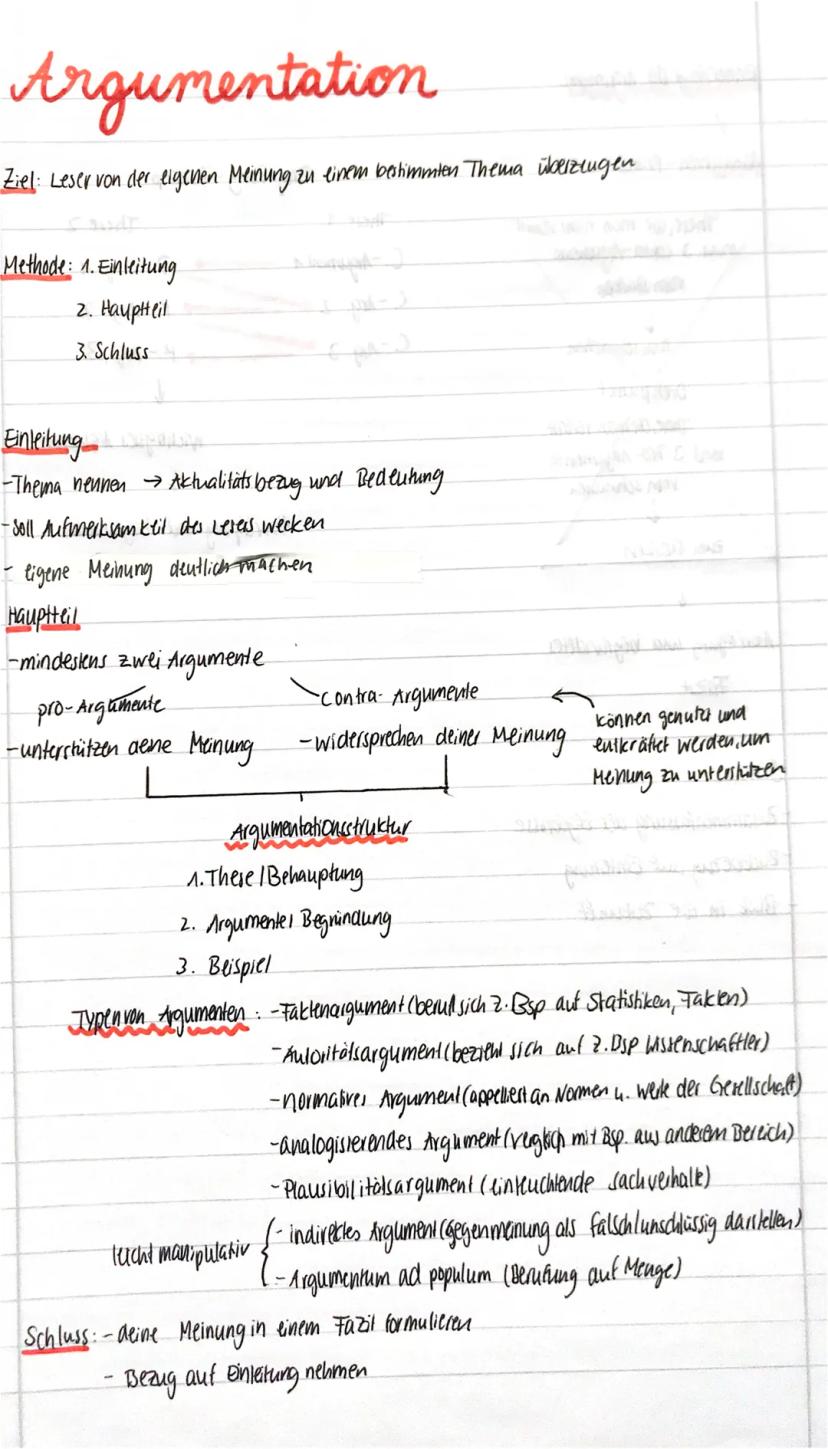 Argumentation
Ziel: Leser von der eigenen Meinung zu einem bestimmten Thema überzeugen
Methode: 1. Einleitung
2. Hauptteil
3. Schluss
Einleitung
- Thema nennen → Aktualitätsbezug und Bedeutung
- soll Aufmerksamkeit des Lesers wecken
- eigene Meinung deutlich machen
Hauptteil
- mindestens zwei Argumente
pro-Argumente
contra-Argumente
- unterstützen deine Meinung
- widersprechen deiner Meinung
← können genutzt und
entkräftet werden, um
Meinung zu unterstützen
Argumentationsstruktur
1. These/Behauptung
2. Argumente/Begründung
3. Beispiel
Typen von Argumenten: - Faktenargument (beruft sich z. Bsp auf Statistiken, Fakten)
- Autoritätsargument (bezieht sich auf z. Bsp Wissenschaftler)
- normatives Argument (appelliert an Normen u. Werte der Gesellschaft)
- analogisierendes Argument (vergleich mit Bsp. aus anderem Bereich)
- Plausibilitätsargument (einleuchtende sachverhalte)
leicht manipulativ { - indirektes Argument (gegenmeinung als falsch/unschlüssig darstellen)
- Argumentum ad populum (Berufung auf Menge)
Schluss: - deine Meinung in einem Fazit formulieren
- Bezug auf Einleitung nehmen